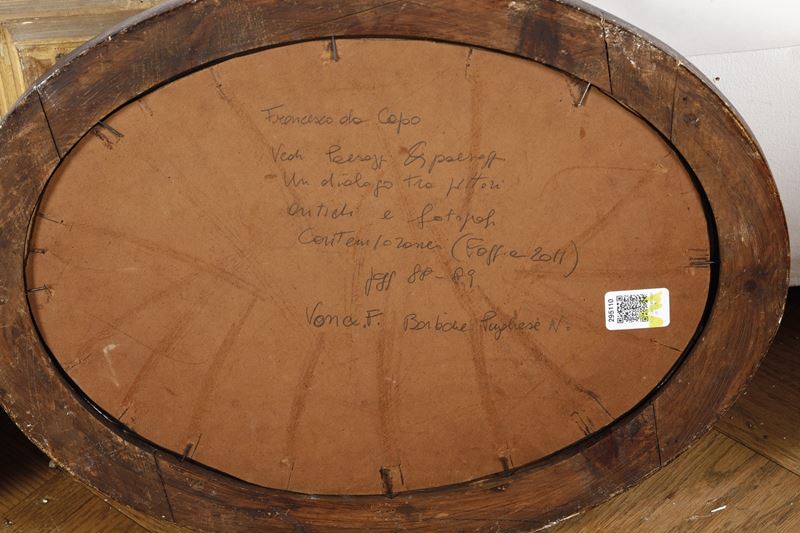 Francesco da Capo
Vedi Paesaggi & paesaggi
Un dialogo tra pittori
antichi e fotografi
Contemporanei (Foggia 2011)
pagg 88-89
Vona F. Barbone Pugliese N.
295110